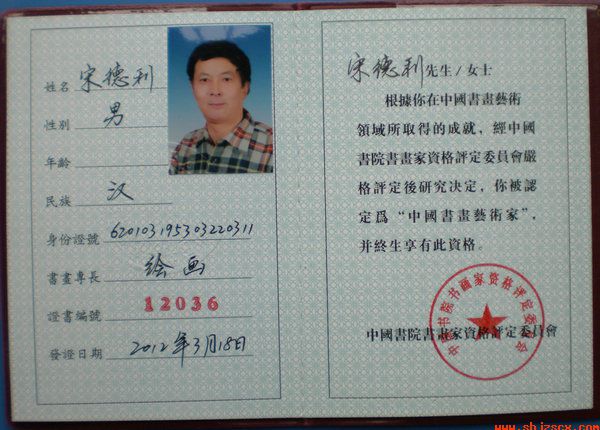 姓名 宋德利
性別 男
年齡
民族 汉
身份證號 620103195303220311
書畫專長 绘画
證書編號 12036
發證日期 2012年3月18日
宋德利先生/女士
根據你在中國書畫藝術
領域所取得的成就，經中國
書院書畫家資格評定委員會嚴
格評定後研究決定，你被認
定爲“中國書畫藝術家”，
并終生享有此資格。
中國書院書畫家資格評定委員會
中国书院书画家资格评定委员会
www.shjzscx.com